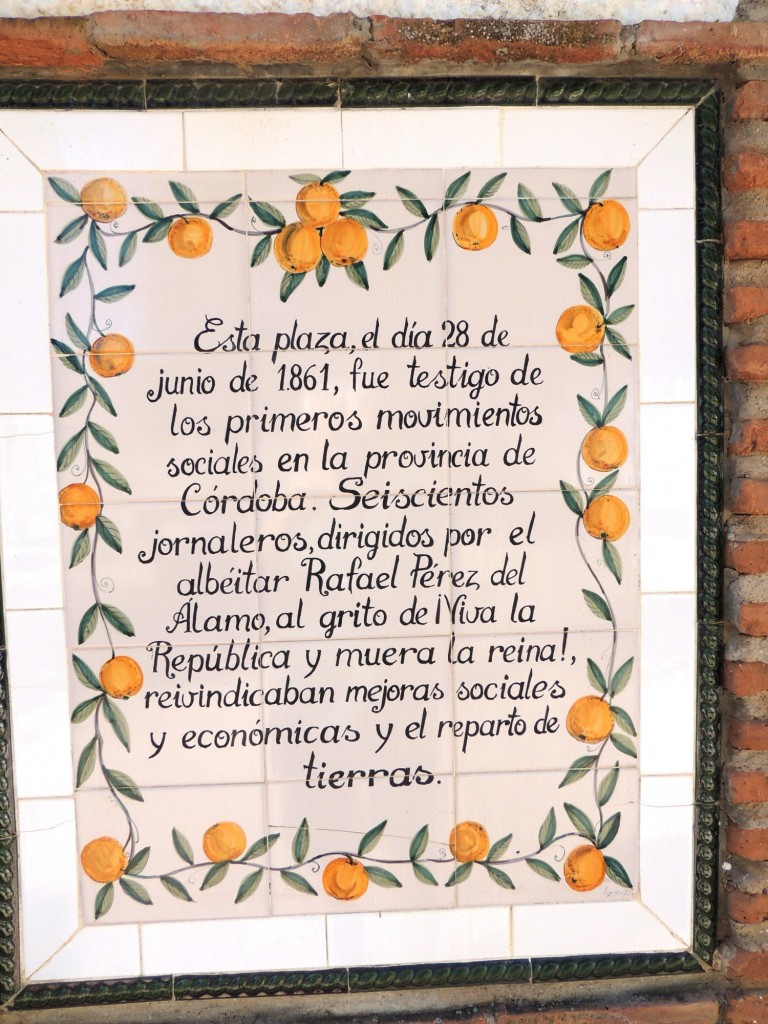 Esta plaza, el día 28 de
junio de 1.861, fue testigo de
los primeros movimientos
sociales en la provincia de
Córdoba. Seiscientos
jornaleros, dirigidos por el
albéitar Rafael Pérez del
Álamo, al grito de ¡Viva la
República y muera la reina!,
reivindicaban mejoras sociales
y económicas y el reparto de
tierras.